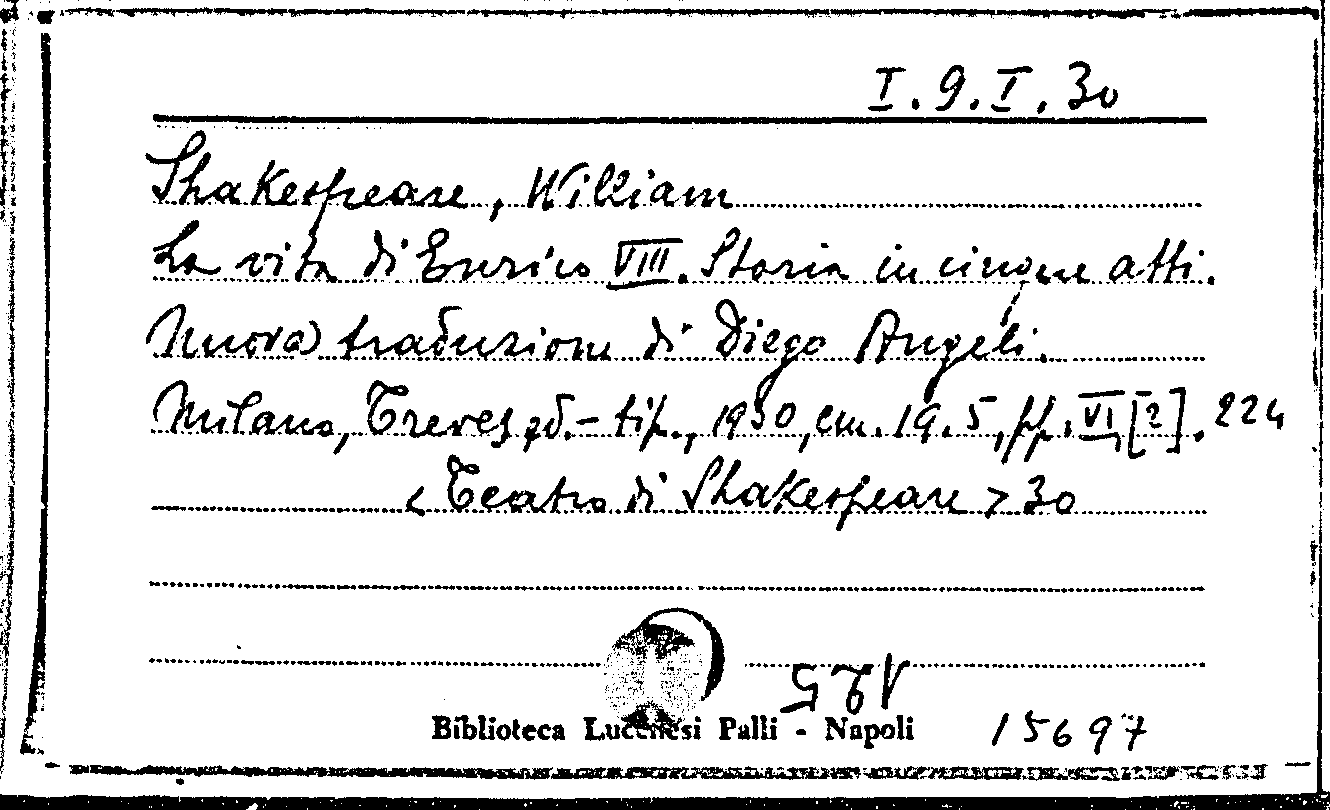 I.9.I.30
Shakespeare, William
La vita di Enrico VIII. Storia in cinque atti.
Nuova traduzione di Diego Angeli.
Milano, Treves ed.-tip., 1930, cm. 19.5, pp. VI, [2], 224
< Teatro di Shakespeare > 30
125
Biblioteca Lucchesi Palli - Napoli 15697